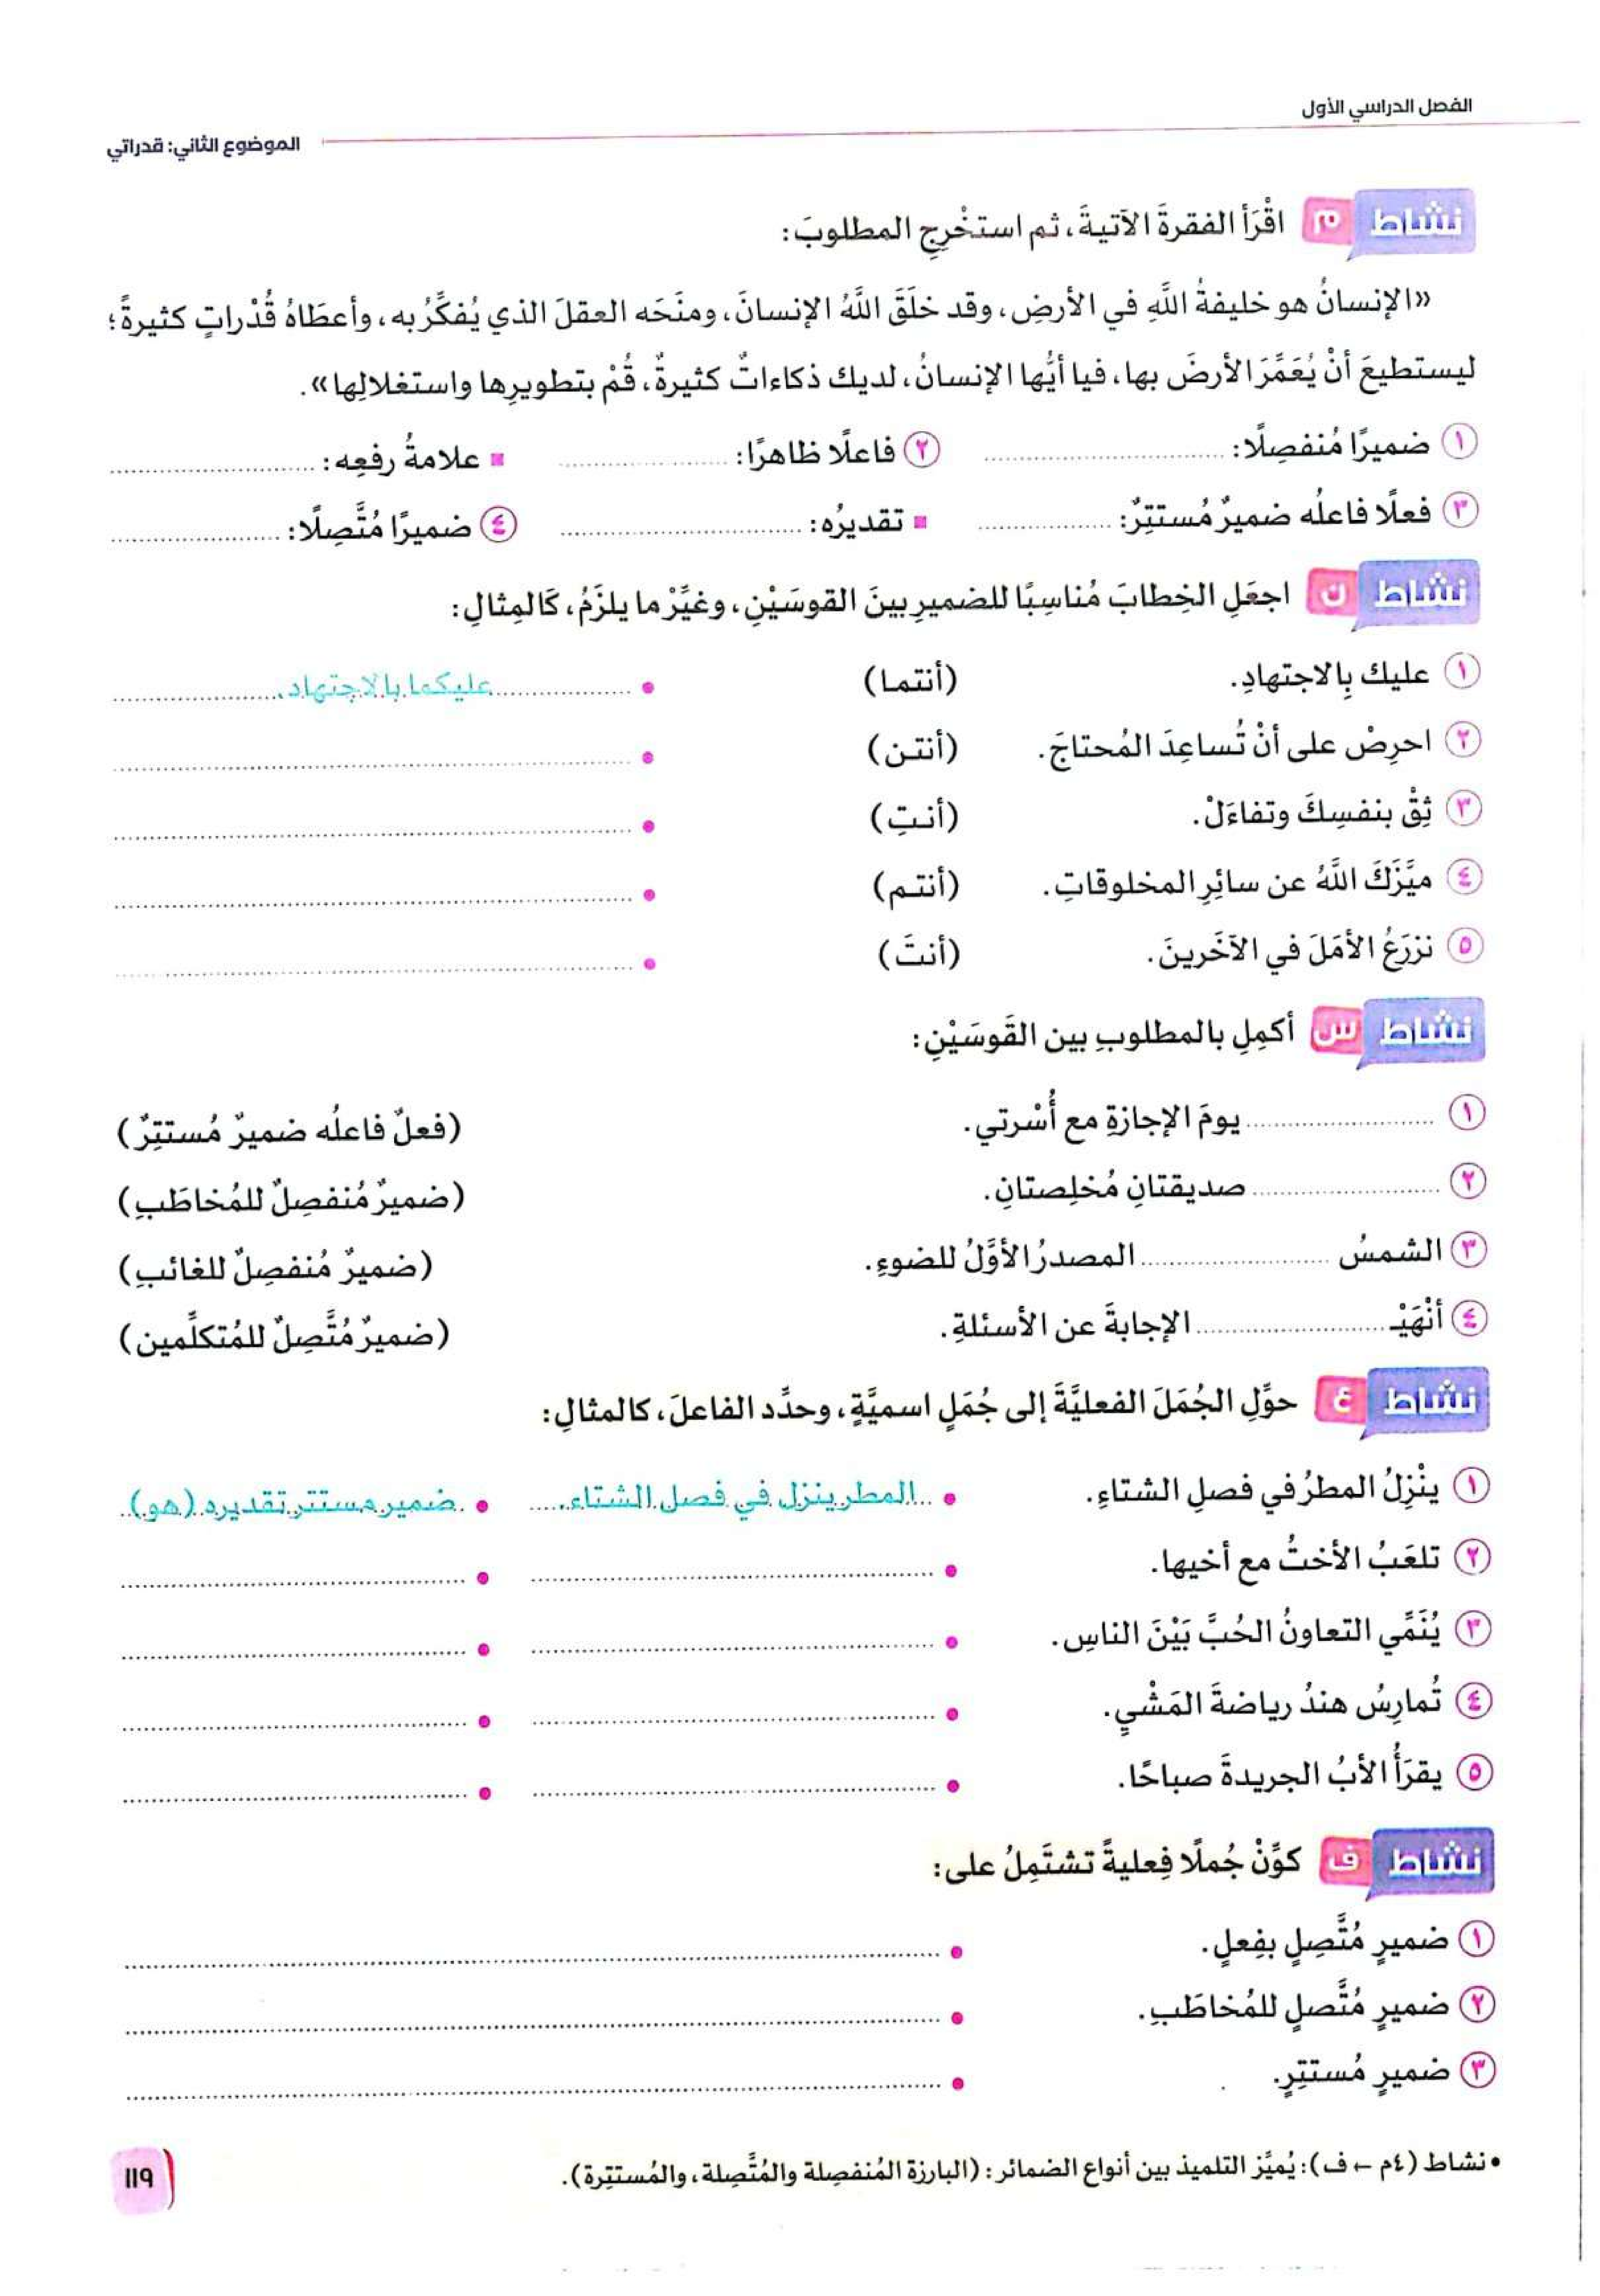 الفصل الدراسي الأول
الموضوع الثاني: قدراتي
نشاط م اقْرَأ الفقرةَ الآتيةَ، ثم استخْرِجِ المطلوبَ:
«الإنسانُ هو خليفةُ اللَّهِ في الأرضِ، وقد خلَقَ اللَّهُ الإنسانَ، ومنَحَه العقلَ الذي يُفكِّرُ به، وأعطَاهُ قُدْراتٍ كثيرةً؛
ليستطيعَ أنْ يُعَمِّرَ الأرضَ بها، فيا أيُّها الإنسانُ، لديك ذكاءاتٌ كثيرةٌ، قُمْ بتطويرِها واستغلالِها».
١ ضميرًا مُنفصِلًا: .......... ٢ فاعلًا ظاهرًا: .......... ■ علامةُ رفعِه: ..........
٣ فعلًا فاعلُه ضميرٌ مُستتِرٌ: .......... ■ تقديرُه: .......... ٤ ضميرًا مُتَّصِلًا: ..........
نشاط ن اجعَلِ الخِطابَ مُناسِبًا للضميرِ بينَ القوسَيْنِ، وغيِّرْ ما يلزَمُ، كَالمِثالِ:
١ عليك بِالاجتهادِ. (أنتما) • عليكما بالاجتهاد.
٢ احرِصْ على أنْ تُساعِدَ المُحتاجَ. (أنتن) • ..........
٣ ثِقْ بنفسِكَ وتفاءَلْ. (أنتِ) • ..........
٤ ميَّزَكَ اللَّهُ عن سائِرِ المخلوقاتِ. (أنتم) • ..........
٥ نزرَعُ الأمَلَ في الآخَرينَ. (أنتَ) • ..........
نشاط س أكمِلِ بالمطلوبِ بين القَوسَيْنِ:
١ .......... يومَ الإجازةِ مع أُسْرتي. (فعلٌ فاعلُه ضميرٌ مُستتِرٌ)
٢ .......... صديقتانِ مُخلِصتانِ. (ضميرٌ مُنفصِلٌ للمُخاطَبِ)
٣ الشمسُ .......... المصدرُ الأوَّلُ للضوءِ. (ضميرٌ مُنفصِلٌ للغائبِ)
٤ أنْهَيْـ .......... الإجابةَ عن الأسئلةِ. (ضميرٌ مُتَّصِلٌ للمُتكلِّمين)
نشاط ع حوِّلِ الجُمَلَ الفعليَّةَ إلى جُمَلٍ اسميَّةٍ، وحدِّد الفاعلَ، كالمثالِ:
١ ينْزِلُ المطرُ في فصلِ الشتاءِ. • المطر ينزل في فصل الشتاء. • ضمير مستتر تقديره (هو).
٢ تلعَبُ الأختُ مع أخيها. • .......... • ..........
٣ يُنَمِّي التعاونُ الحُبَّ بَيْنَ الناسِ. • .......... • ..........
٤ تُمارِسُ هندُ رياضةَ المَشْيِ. • .......... • ..........
٥ يقرَأُ الأبُ الجريدةَ صباحًا. • .......... • ..........
نشاط ف كوِّنْ جُملًا فِعليةً تشتَمِلُ على:
١ ضميرٍ مُتَّصِلٍ بفِعلٍ. • ..........
٢ ضميرٍ مُتَّصلٍ للمُخاطَبِ. • ..........
٣ ضميرٍ مُستتِرٍ. • ..........
• نشاط (٤م ← ف): يُميِّز التلميذ بين أنواع الضمائر: (البارزة المُنفصِلة والمُتَّصِلة، والمُستتِرة).
١١٩